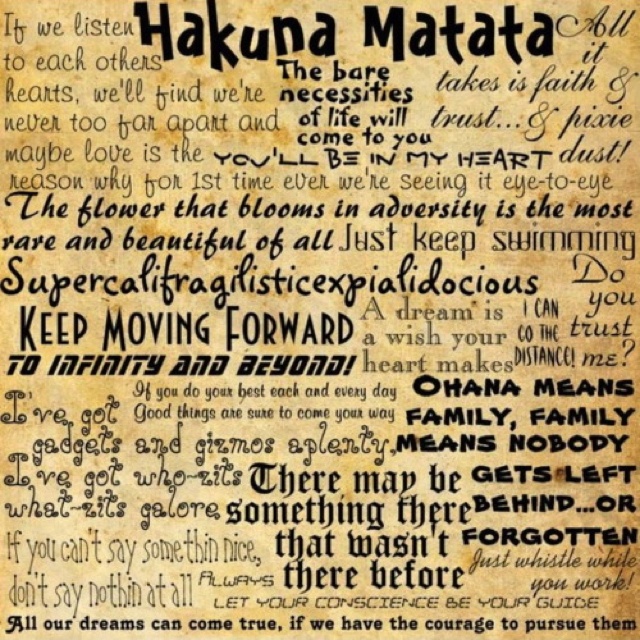 If we listen
to each others
hearts, we'll find we're
never too far apart and
maybe love is the
reason why for 1st time ever we're seeing it eye-to-eye
Hakuna Matata
The bare
necessities
of life will
come to you
All
it
takes is faith &
trust...& pixie
dust!
YOU'LL BE IN MY HEART
The flower that blooms in adversity is the most
rare and beautiful of all
Just keep swimming
Supercalifragilisticexpialidocious
Do
you
trust
me?
KEEP MOVING FORWARD
A dream is
a wish your
heart makes
I CAN
GO THE
DISTANCE!
TO INFINITY AND BEYOND!
If you do your best each and every day
Good things are sure to come your way
OHANA MEANS
FAMILY, FAMILY
MEANS NOBODY
GETS LEFT
BEHIND...OR
FORGOTTEN
I've got
gadgets and gizmos aplenty,
I've got who-zits
what-zits galore
There may be
something there
that wasn't
there before
If you can't say somethin nice,
don't say nothin at all
Just whistle while
you work!
ALWAYS
LET YOUR CONSCIENCE BE YOUR GUIDE
All our dreams can come true, if we have the courage to pursue them